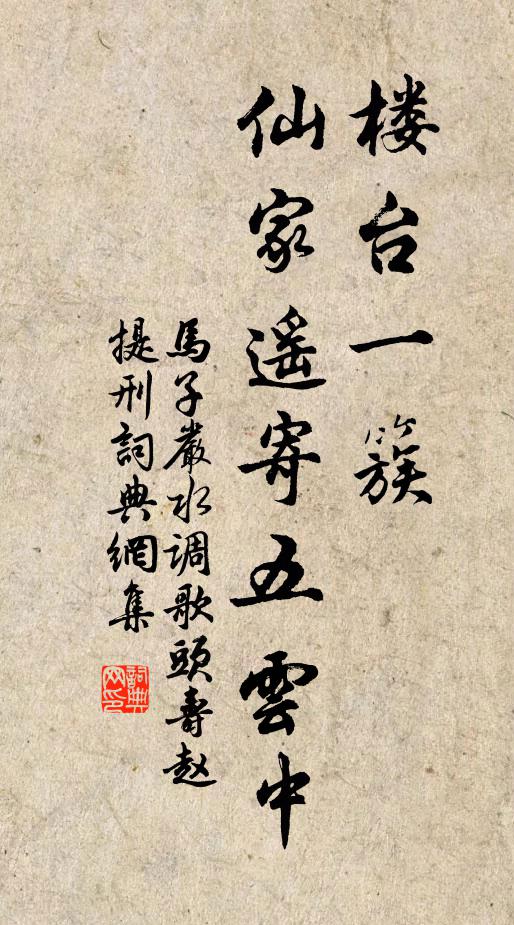 楼台一簇
仙家遥寄五雲中
馬子嚴水调歌頭壽赵
提刑詞典網集
詞典
网印